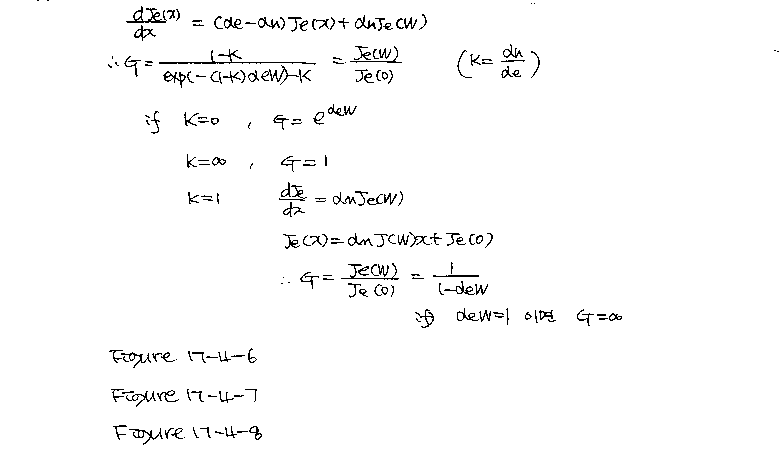 dJe(x)/dx = (de-dn) Je(x) + dnJe(W)
∴ G = 1-K / exp(-(1-K)deW)-K = Je(W)/Je(0) (K = dn/de)
if K=0 , G = e^deW
K=∞ , G=1
K=1 dJe/dx = dnJe(W)
Je(x) = dn J(W)x + Je(0)
∴ G = Je(W)/Je(0) = 1/1-deW
if deW=1 이면 G=∞
Figure 17-4-6
Figure 17-4-7
Figure 17-4-8